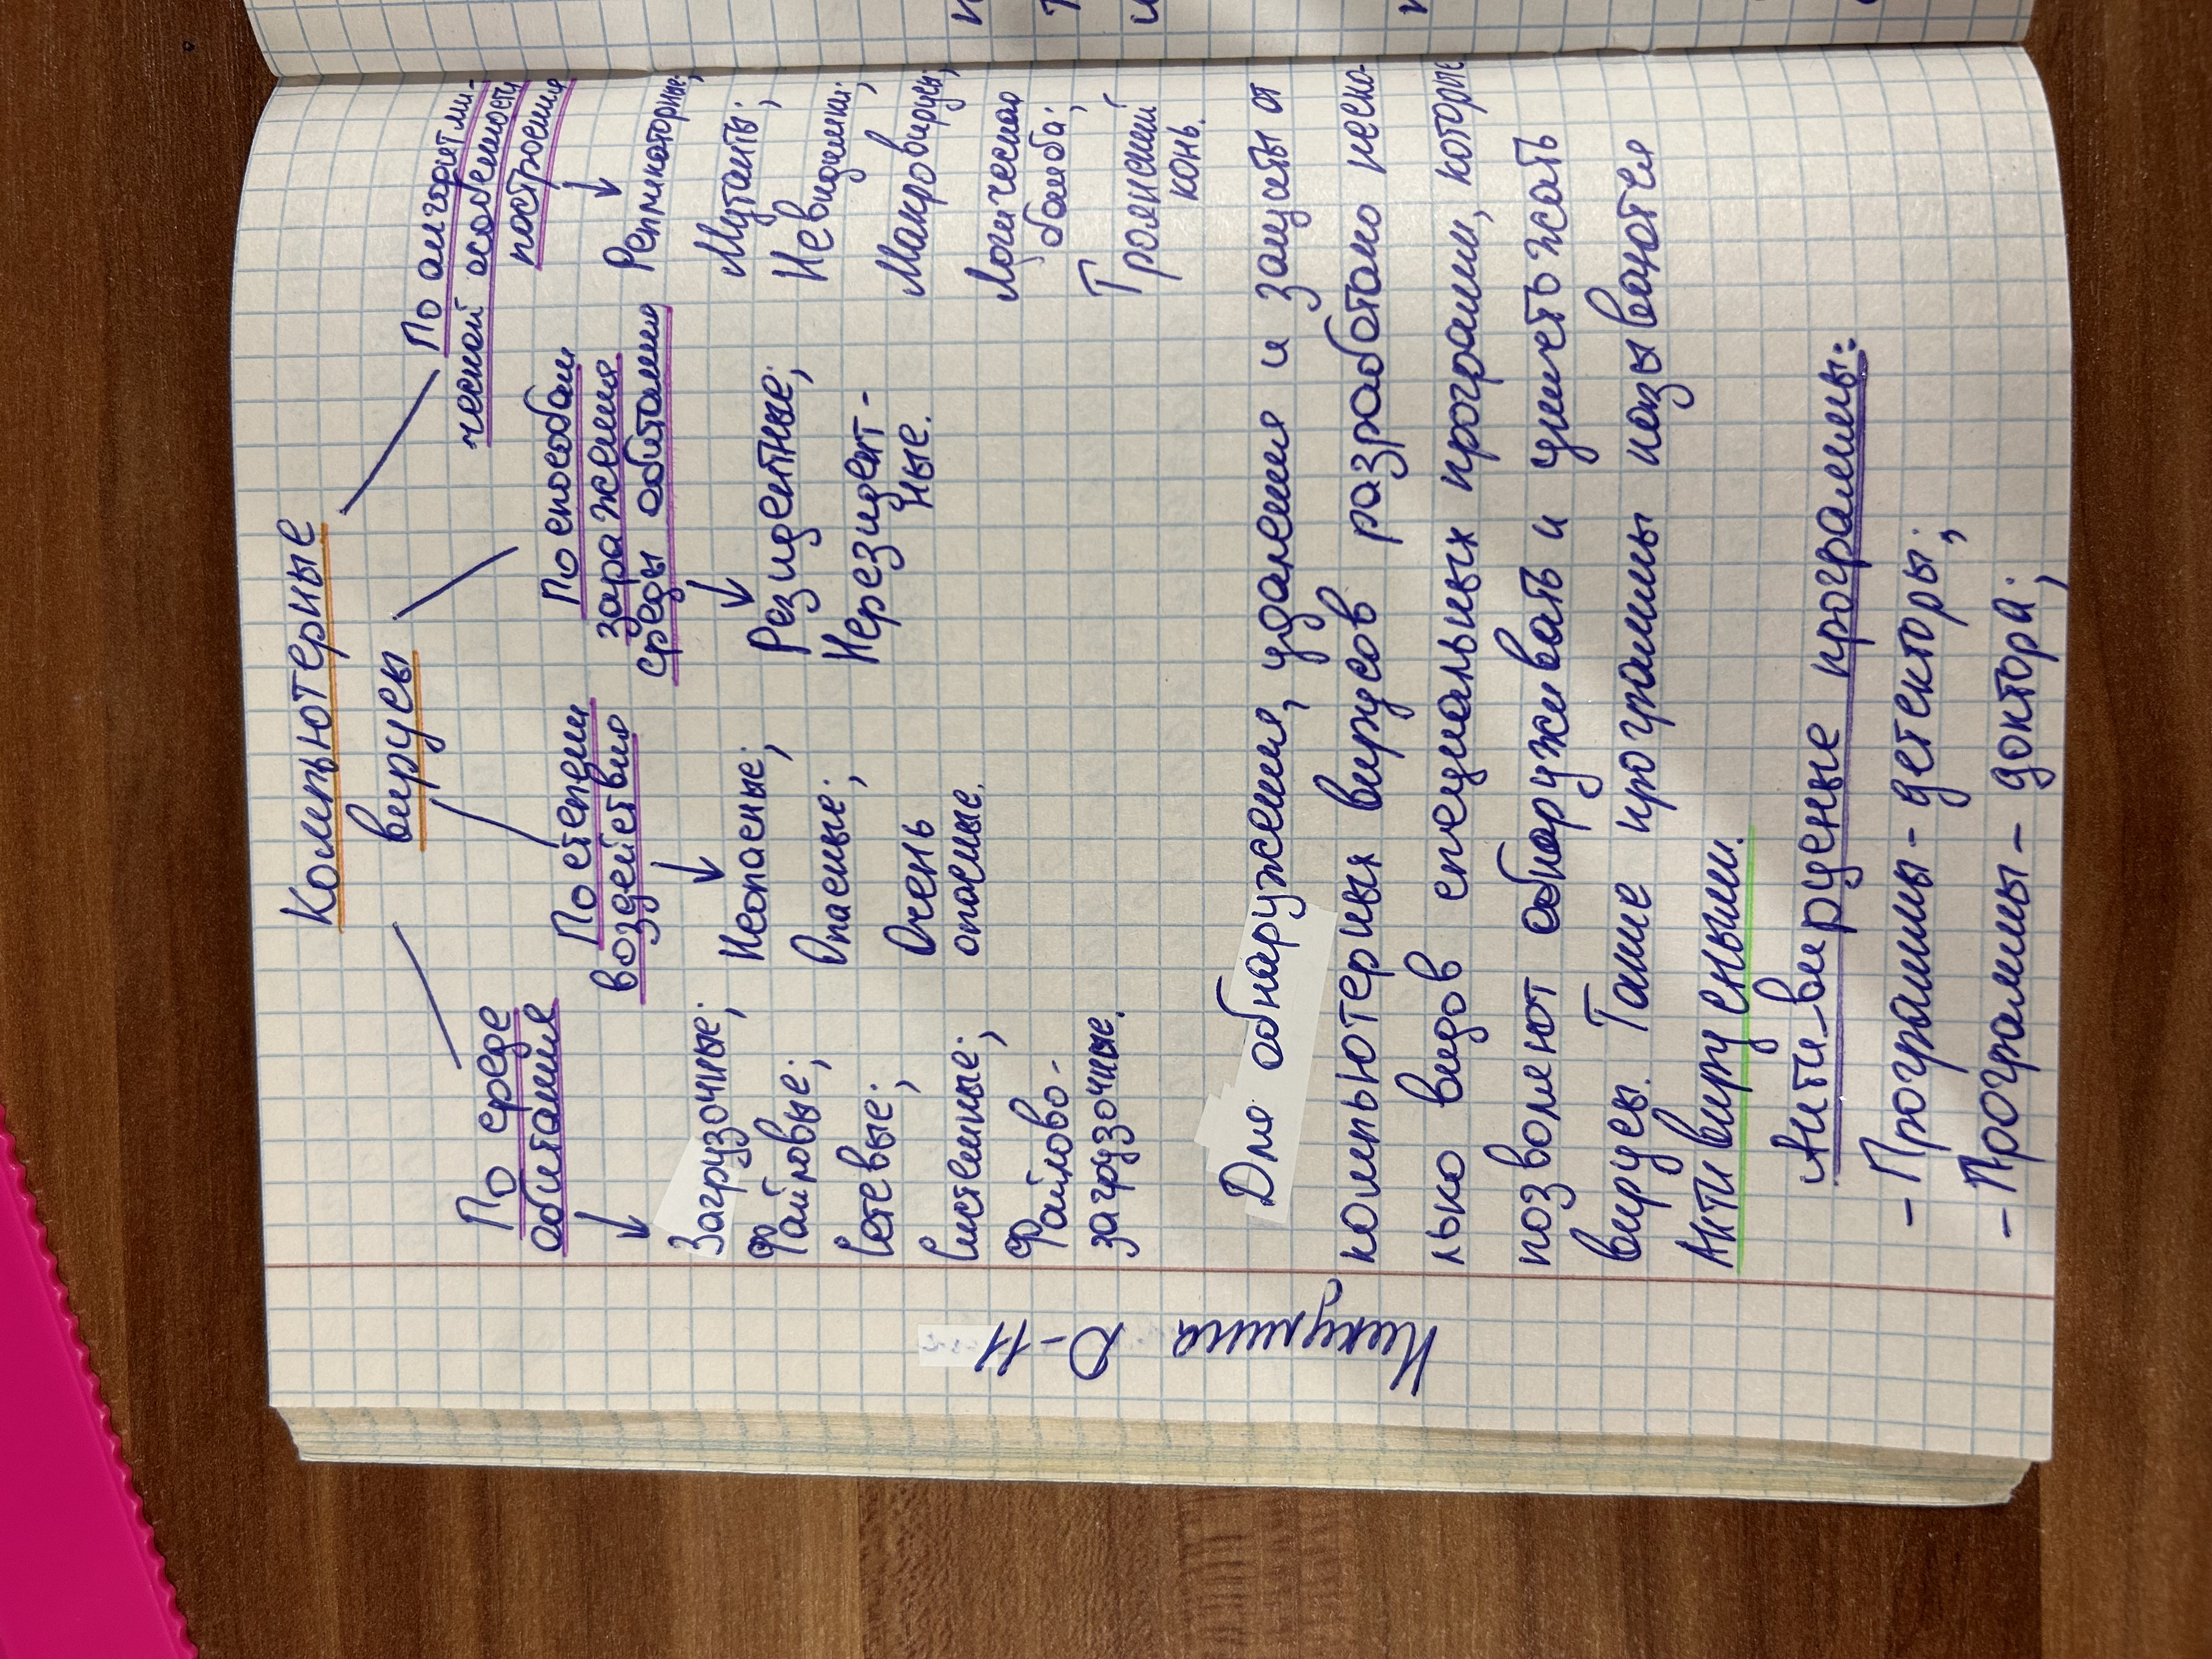 Компьютерные
вирусы
По среде
обитания
Загрузочные;
Файловые;
Сетевые;
Системные;
Файлово-
загрузочные.
По степени
воздействию
Неопасные;
Опасные;
Очень
опасные.
По способам
заражения
среды обитания
Резидентные;
Нерезидент-
ные.
По алгоритми-
ческой особенности
построения
Репликаторные;
Мутанты;
Невидимки;
Макровирусы;
Логическая
бомба;
Троянский
конь.
Для обнаружения, удаления и защиты от
компьютерных вирусов разработано неско-
лько видов специальных программ, которые
позволяют обнаруживать и уничтожать
вирусы. Такие программы называются
Антивирусными.
Анти-вирусные программы:
- Программы - детекторы;
- Программы - доктора;
О-11